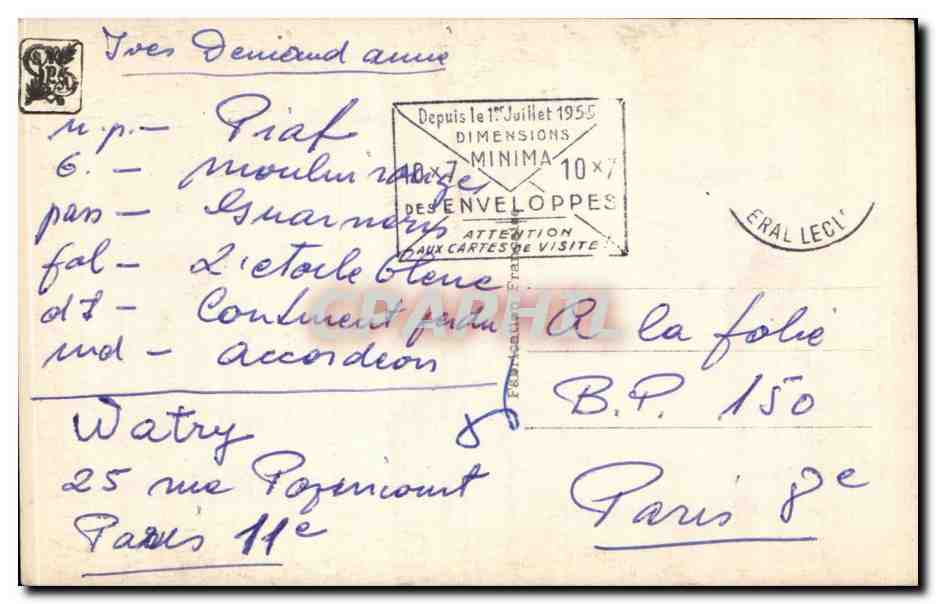 Yves Deniaud anne
n.p. - Piaf
6. - moulin rouge
pass - Guarneris
fol - L'etoile bleue
d7 - Continent perdu
md - accordeon
Watry
25 rue Popincourt
Paris 11e
Depuis le 1er Juillet 1955
DIMENSIONS
MINIMA
10 x 7 10 x 7
DES ENVELOPPES
ATTENTION
AUX CARTES DE VISITE
ERAL LECL
Fabrication Française
CPAPHIL
A la folie
B.P. 150
Paris 8e